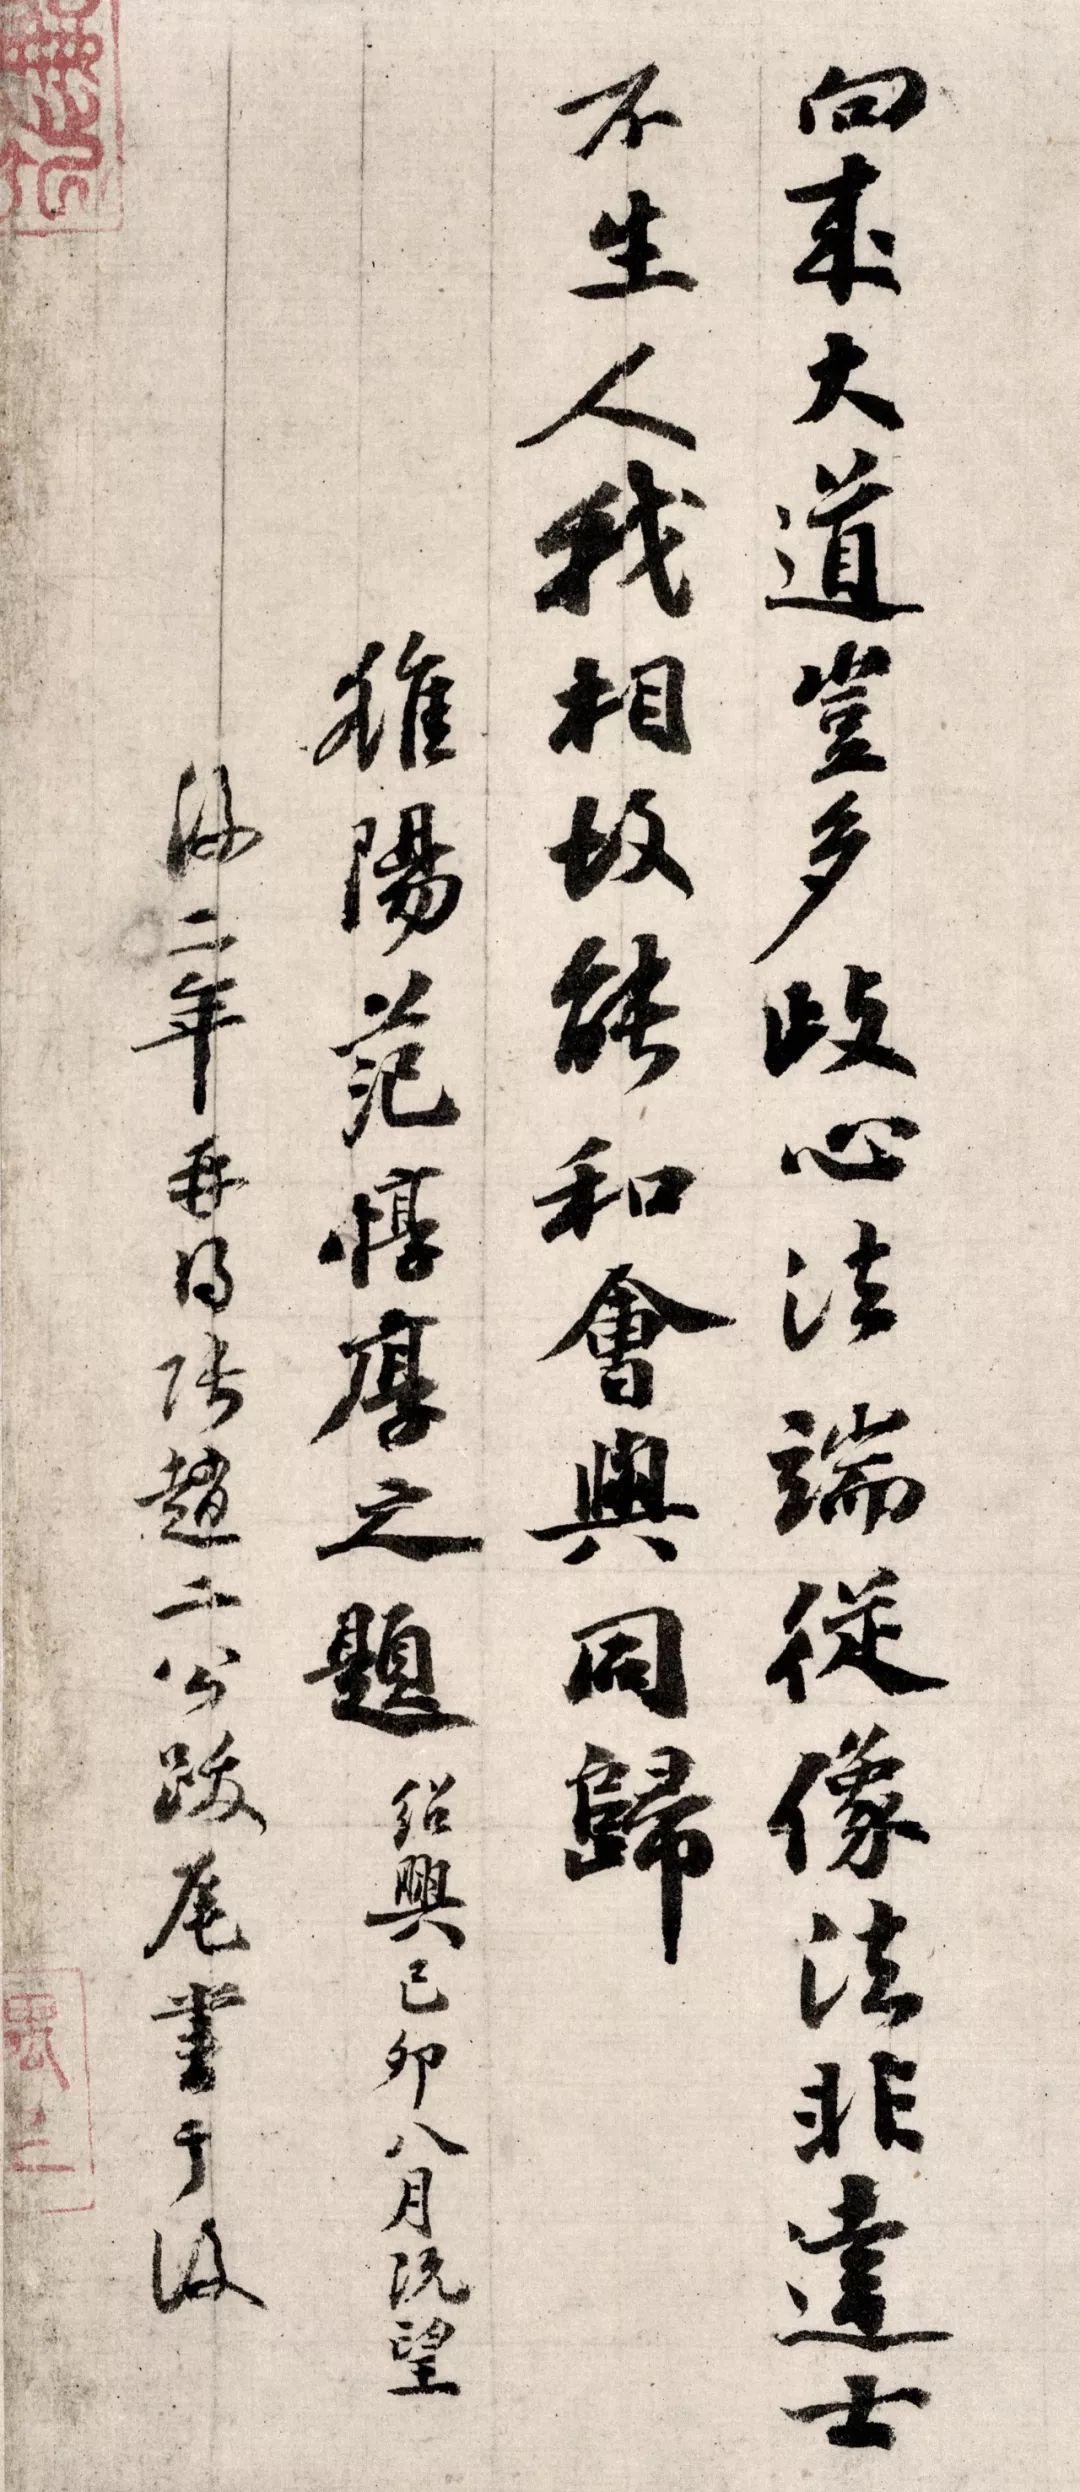 向來大道豈多歧心法端從像法非達士
不生人我相故能和會與同歸
雒陽范惇厚之題 紹興己卯八月既望
後二年再得張趙二公跋尾書于後